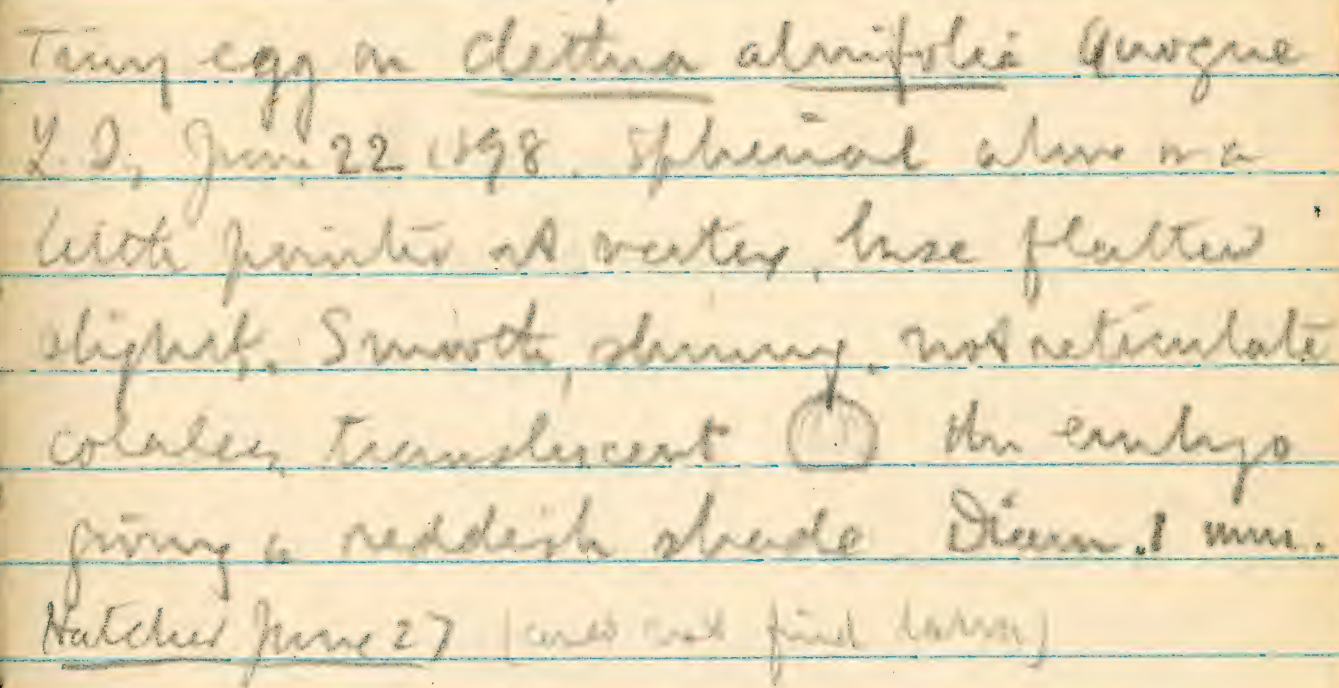 Tiny egg on Clethra alnifolia Quogue
L. I., June 22 1898. Spherical alone or a
little pointed at vertex, base flatten
slightly. Smooth, shining, not reticulate
colorless, translucent the embryo
giving a reddish shade Diam .1 mm.
Hatched June 27 (could not find larva)